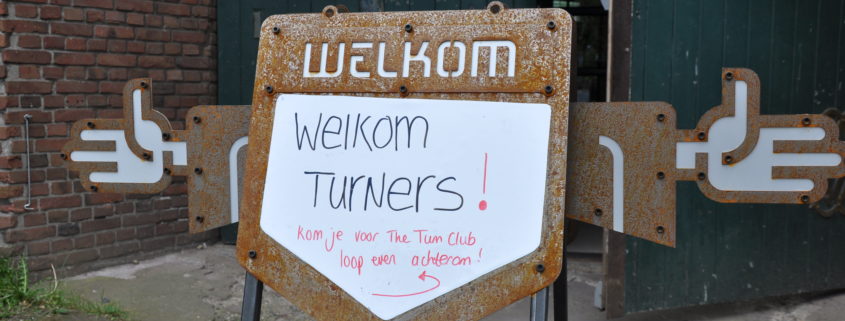 WELKOM
Welkom
Turners!
Kom je voor The Turn Club
loop even achterom!